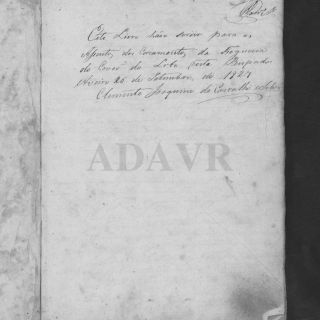 Este Livro hão servir para os
Assentos dos Cazamentos da Freguezia
do Covão do Lobo desta
Aveiro 25 de Setembro de 1827
Clemente Joaquim de Carvalho
ADAVR